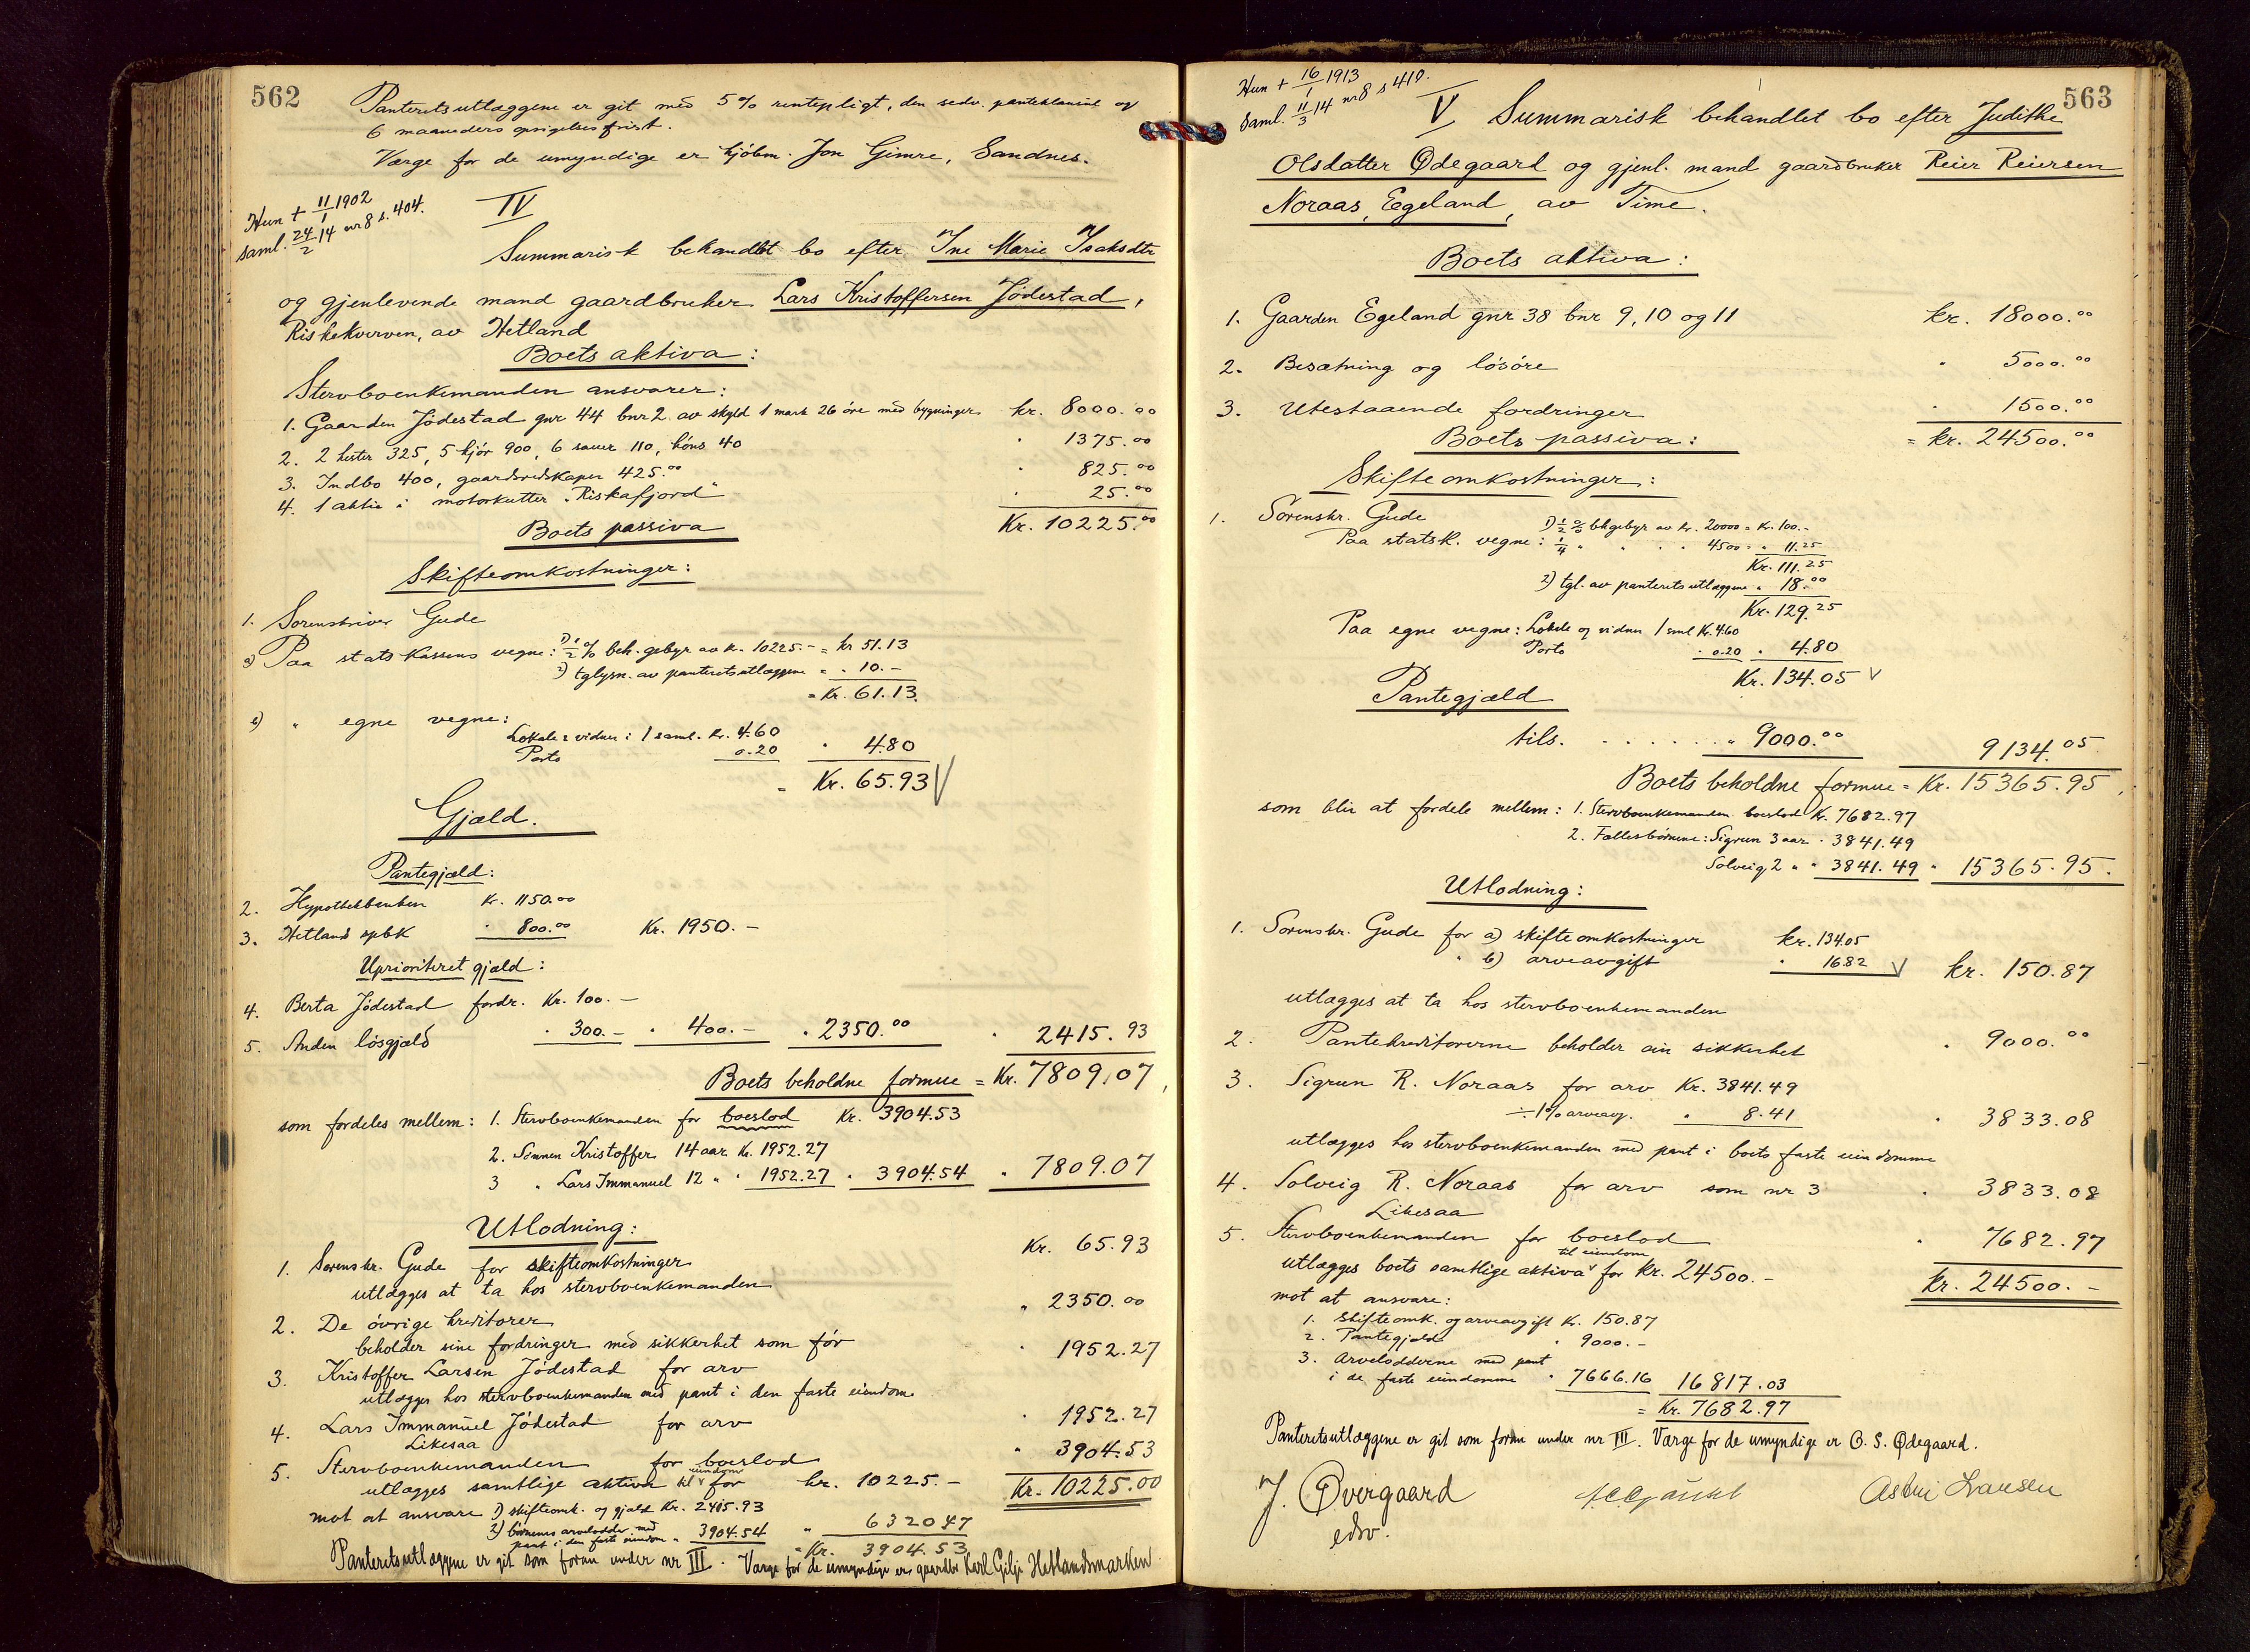 562
Panteretsutlæggene er git med 5% rentepligt, den sedv. panteklausul og
6 maaneders opsigelsesfrist.
Værge for de umyndige er kjøbm. Jon Gimre, Sandnes.
Hun + 11/1 1902
Saml. 24/2 14 nr 8 s. 404.
IV
Summarisk behandlet bo efter Ine Marie Isaksdtr
og gjenlevende mand gaardbruker Lars Kristoffersen Jödestad,
Riskekverven, av Hetland
Boets aktiva:
Stervboenkemanden ansvarer:
1. Gaarden Jödestad gnr 44 bnr 2 av skyld 1 mark 26 öre med bygninger kr. 8000.00
2. 2 hester 325, 5 kjör 900, 6 sauer 110, höns 40 " 1375.00
3. Indbo 400, gaardsredskaper 425.00 " 825.00
4. 1 aktie i motorkutter "Riskafjord" " 25.00
Kr. 10225.00
Boets passiva
Skifteomkostninger:
1. Sorenskriver Gude
a) Paa statskassens vegne: 1) 1/2 % beh. gebyr av kr. 10225.- = kr 51.13
2) tglysn. av panteretsutlæggene = " 10.-
= Kr. 61.13
b) " egne vegne:
Lokale & vidner i 1 saml. kr. 4.60
Porto 0.20 " 4.80
= Kr. 65.93 V
Gjæld.
Pantegjæld:
2. Hypothekbanken kr. 1150.00
3. Hetland spbk " 800.00 Kr. 1950.-
Uprioritert gjæld:
4. Berta Jödestad fordr. Kr. 100.-
5. Anden lösgjæld " 300.- " 400.- " 2350.00 " 2415.93
Boets beholdne formue = Kr. 7809.07,
som fordeles mellem: 1. Stervboenkemanden for boeslod Kr. 3904.53
2. Sönnen Kristoffer 14 aar Kr. 1952.27
3 " Lars Immanuel 12 " " 1952.27 " 3904.54 " 7809.07
Utlodning:
1. Sorenskr. Gude for skifteomkostninger Kr. 65.93
utlægges at ta hos stervboenkemanden
2. De övrige kreditorer " 2350.00
beholder sine fordringer med sikkerhet som för
3. Kristoffer Larsen Jödestad for arv " 1952.27
utlægges hos stervboenkemanden med pant i den faste eiendom
4. Lars Immanuel Jödestad for arv " 1952.27
Likesaa
5. Stervboenkemanden for boeslod " 3904.53
utlægges samtlige aktiva til eiendom for kr. 10225.- Kr. 10225.00
mot at ansvare 1) skifteomk. og gjæld Kr. 2415.93
2) börnenes arvelodder med
pant i den faste eiendom " 3904.54 " 6320.47
= Kr. 3904.53
Panteretsutlæggene er git som foran under nr III. Værge for de umyndige er gaardbr Karl Gilje Hetlandsmarken
563
Hun + 16/1 1913
Saml. 11/3 14 nr 8 s 410.
V Summarisk behandlet bo efter Judithe
Olsdatter Ødegaard og gjenl. mand gaardbruker Reier Reiersen
Noraas, Egeland, av Time.
Boets aktiva:
1. Gaarden Egeland gnr 38 bnr 9, 10 og 11 kr. 18000.00
2. Besætning og lösöre " 5000.00
3. Utestaaende fordringer " 1500.00
= kr. 24500.00
Boets passiva:
Skifteomkostninger:
1. Sorenskr. Gude
Paa statsk. vegne: 1) 1/2 % beh gebyr av kr. 20000 = kr. 100.-
1/4 " " " " 4500 = " 11.25
Kr. 111.25
2) tgl. av panteretsutlæggene " 18.00
Kr. 129.25
Paa egne vegne: Lokale og vidner 1 saml Kr. 4.60
Porto " 0.20 " 4.80
Kr. 134.05 V
Pantegjæld
tils. . . . . . . " 9000.00 9134.05
Boets beholdne formue = Kr. 15365.95,
som blir at fordele mellem: 1. Stervboenkemanden boeslod Kr. 7682.97
2. Fællesbörnene: Sigrun 3 aar " 3841.49
Solveig 2 " " 3841.49 " 15365.95.
Utlodning:
1. Sorenskr. Gude for a) skifteomkostninger kr. 134.05
" b) arveavgift " 16.82 V kr. 150.87
utlægges at ta hos stervboenkemanden
2. Pantekreditorerne beholder sin sikkerhet " 9000.00
3. Sigrun R. Noraas for arv Kr. 3841.49
÷ 1% arveavg. " 8.41 " 3833.08
utlægges hos stervboenkemanden med pant i boets faste eiendomme
4. Solveig R. Noraas for arv som nr 3 " 3833.08
Likesaa
5. Stervboenkemanden for boeslod " 7682.97
utlægges boets samtlige aktiva til eiendom for kr. 24500.- kr. 24500.-
mot at ansvare:
1. Skifteomk. og arveavgift Kr. 150.87
2. Pantegjæld " 9000.-
3. Arvelodderne med pant
i de faste eiendomme " 7666.16 16817.03
= Kr. 7682.97
Panteretsutlæggene er git som foran under nr III. Værge for de umyndige er O. S. Ødegaard.
J. Øvergaard
edsv.
Astri Larsen